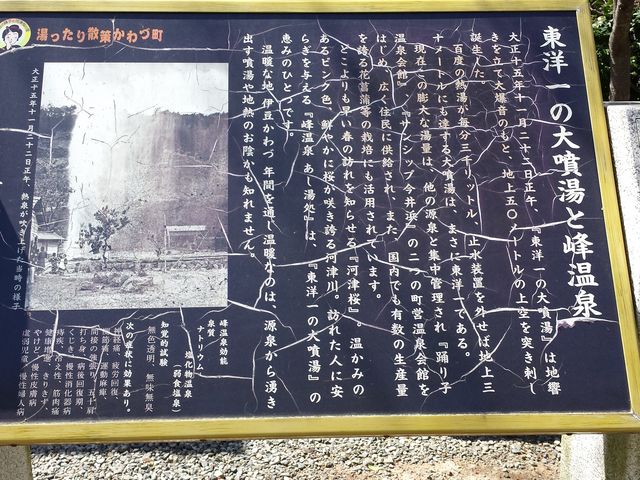 湯ったり散策かわづ町
東洋一の大噴湯と峰温泉
大正十五年十一月二十二日正午、『東洋一の大噴湯』は地響
きを立て大爆音のもと、地上五〇メートルの上空を突き刺し
誕生した。
百度の熱湯が毎分三千リットル、止水装置を外せば地上三
十メートルにも達する大噴湯は、まさに東洋一である。
現在この膨大な湯量は、他の源泉と集中管理され『踊り子
温泉会館』、『サンシップ今井浜』の二つの町営温泉会館を
はじめ、広く住民に供給され、また、国内でも有数の生産量
を誇る花菖蒲等の栽培にも活用されています。
どこよりも早い春の訪れを知らせる『河津桜』。温かみの
あるピンク色、鮮やかに桜が咲き誇る河津川。訪れた人に安
らぎを与える『峰温泉 あし湯処』は、『東洋一の大噴湯』の
恵みのひとつです。
温暖な地 伊豆かわづ 年間を通し温暖なのは、源泉から湧き
出す噴湯や地熱のお陰かも知れません。
大正十五年十一月二十二日正午、熱泉が吹き上げた当時の様子
峰温泉効能
泉質
ナトリウム 塩化物温泉
（弱食塩泉）
知覚的試験
無色透明 無味無臭
次の症状に効果あり。
神経痛、疲労回復、
関節痛、運動麻痺、
間接の強張り、五十肩
打ち身、病後回復期、
くじき、慢性消化器病
痔疾、冷え性、筋肉痛
健康増進、きりきず、
やけど、慢性皮膚病
虚弱児童、慢性婦人病